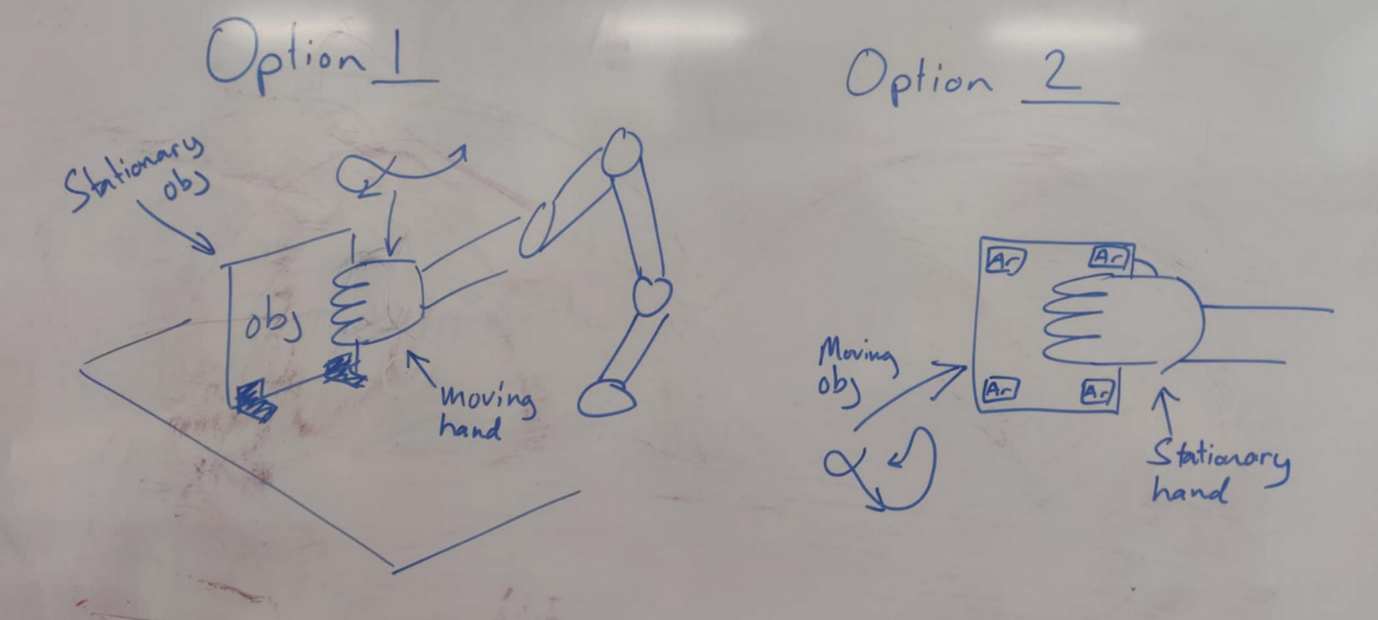 Option 1
Stationary
obj
obj
moving
hand
Option 2
Ar
Ar
Moving
obj
Ar
Ar
Stationary
hand